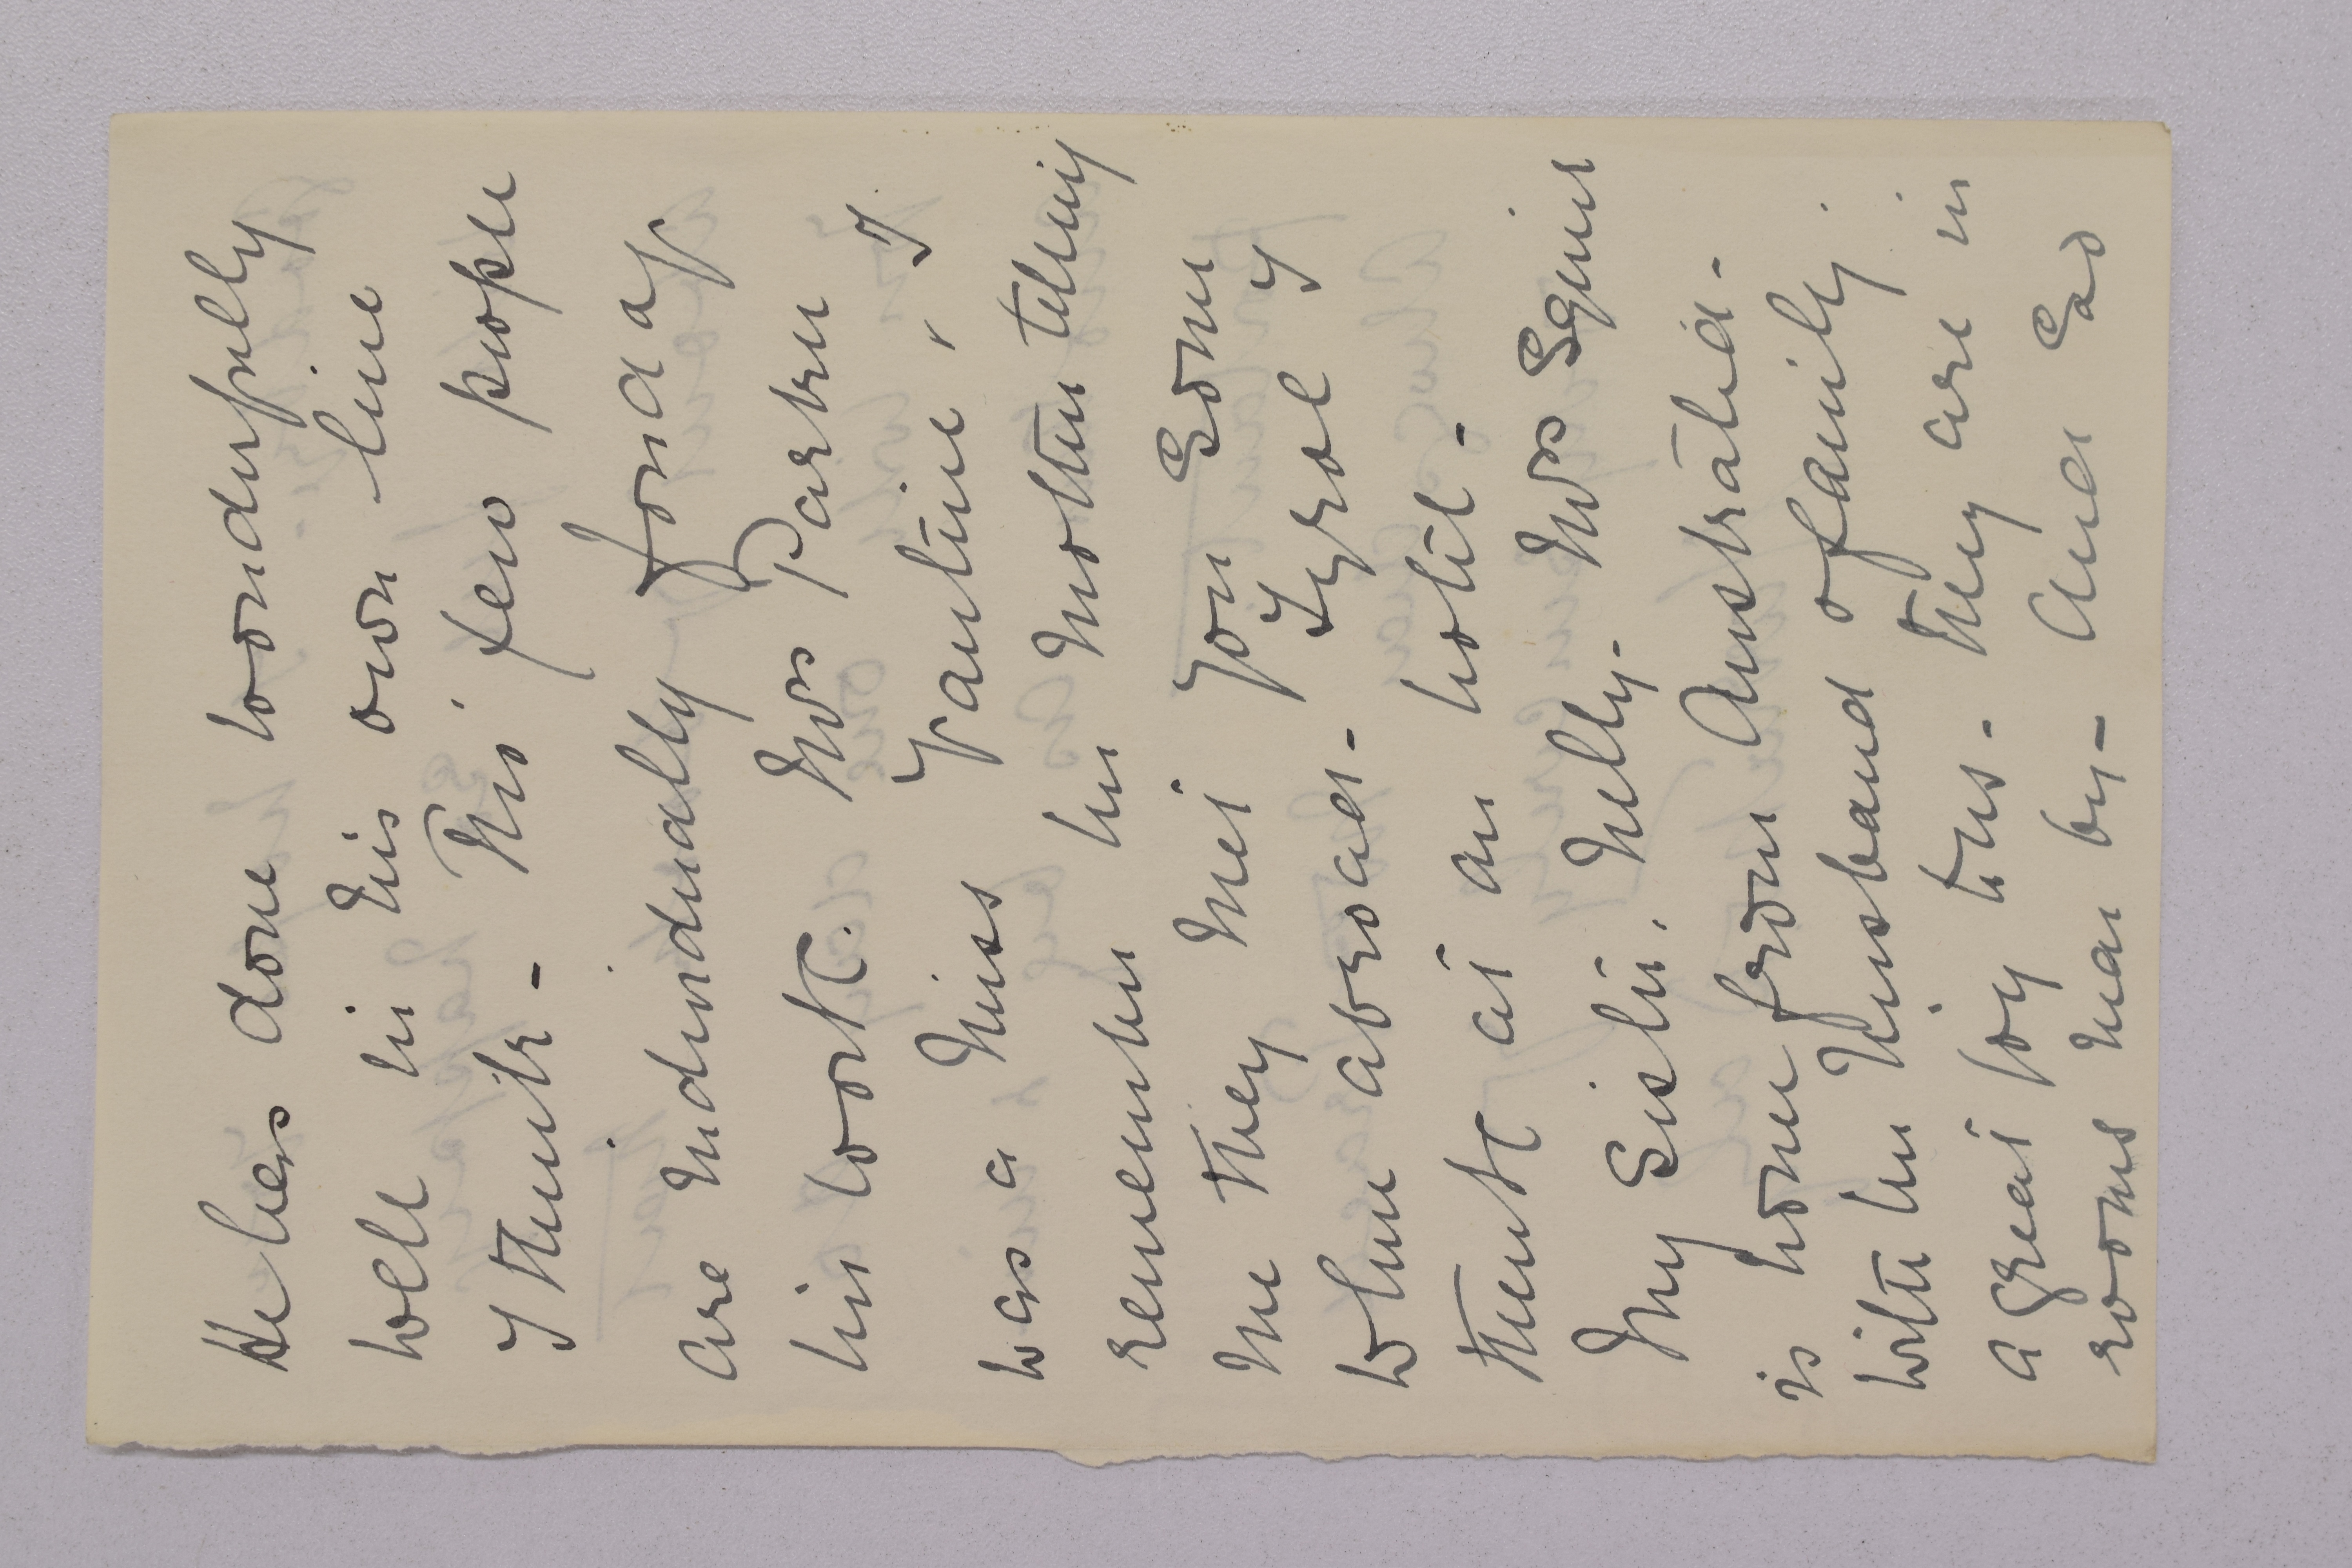 He has done wonderfully
well in his own line
I think - This. few people
are individually fond of
his work. Mrs Parker
was a Miss Vantini, I
remember her Mother telling
me they met you Some
when abroad - Tyrol I
think at an hotel -
My Sister. Nelly - Mrs Squire
is home from Australia -
with her Husband & family.
a great joy to us - they are in
rooms near by - And Eas